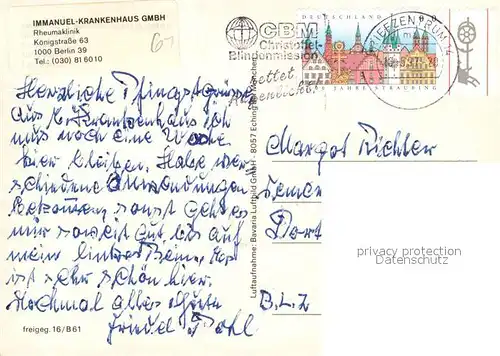 IMMANUEL-KRANKENHAUS GMBH
Rheumaklinik
Königstraße 63
1000 Berlin 39
Tel.: (030) 81 6010
67
CBM
Christoffel-
Blindenmission
rettet
Augenlicht!
DEUTSCHLAND
JAHRE STRAUBING
Herzliche Pfingstgrüße
aus Krankenhaus ich
muß noch eine Woche
hier bleiben. Habe ver-
schiedene Anwendungen
bekommen sonst geht es
mir soweit gut bis auf
mein linkes Bein. Hier
ist sehr schön hier.
Nochmal alles Gute
Pohl
freigeg. 16/B61
Luftaufnahme: Bavaria Luftbild GmbH · 8057 Eching
Margot Richter
Dort
B.L.Z
privacy protection
Datenschutz